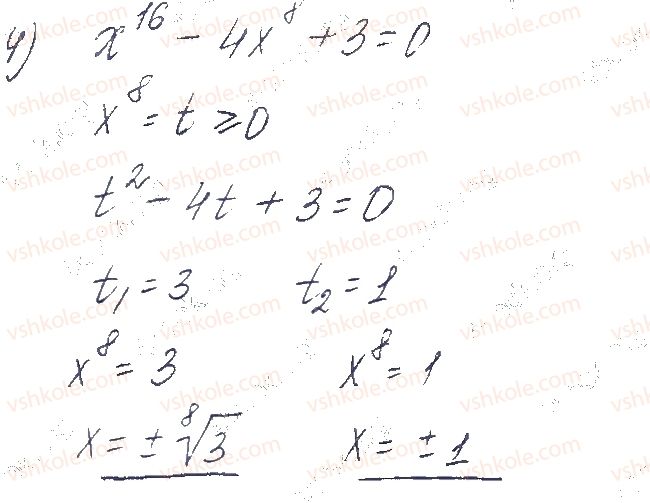 4) x^16 - 4x^8 + 3 = 0
x^8 = t ⩾ 0
t^2 - 4t + 3 = 0
t₁ = 3 t₂ = 1
x^8 = 3 x^8 = 1
x = ± ⁸√3 x = ± 1
vshkole.com